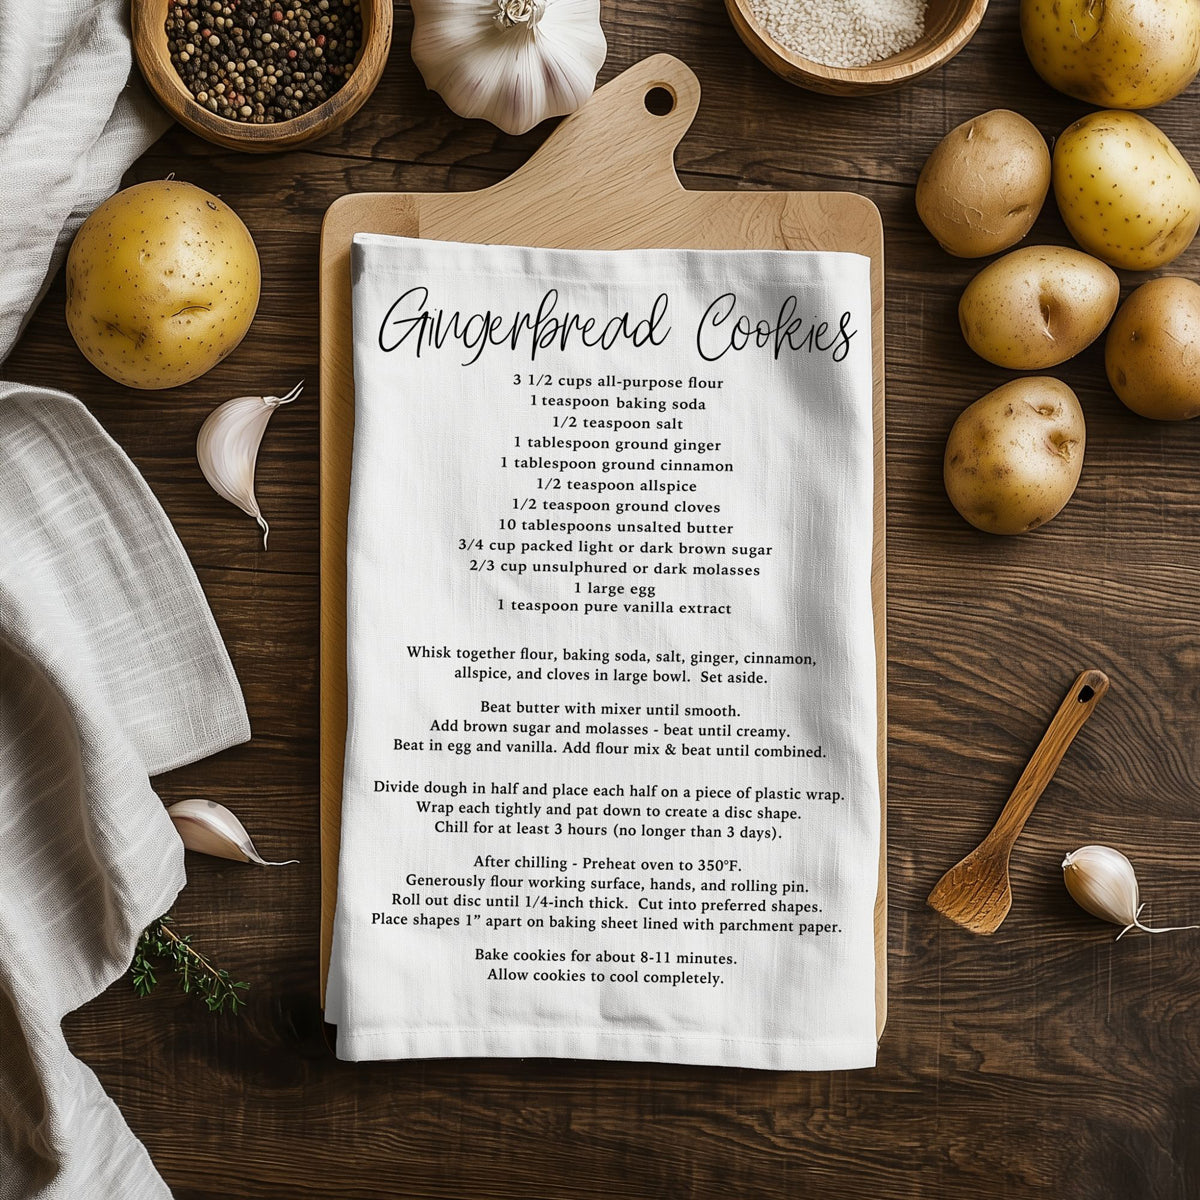 Gingerbread Cookies
3 1/2 cups all-purpose flour
1 teaspoon baking soda
1/2 teaspoon salt
1 tablespoon ground ginger
1 tablespoon ground cinnamon
1/2 teaspoon allspice
1/2 teaspoon ground cloves
10 tablespoons unsalted butter
3/4 cup packed light or dark brown sugar
2/3 cup unsulphured or dark molasses
1 large egg
1 teaspoon pure vanilla extract
Whisk together flour, baking soda, salt, ginger, cinnamon,
allspice, and cloves in large bowl. Set aside.
Beat butter with mixer until smooth.
Add brown sugar and molasses - beat until creamy.
Beat in egg and vanilla. Add flour mix & beat until combined.
Divide dough in half and place each half on a piece of plastic wrap.
Wrap each tightly and pat down to create a disc shape.
Chill for at least 3 hours (no longer than 3 days).
After chilling - Preheat oven to 350°F.
Generously flour working surface, hands, and rolling pin.
Roll out disc until 1/4-inch thick. Cut into preferred shapes.
Place shapes 1” apart on baking sheet lined with parchment paper.
Bake cookies for about 8-11 minutes.
Allow cookies to cool completely.